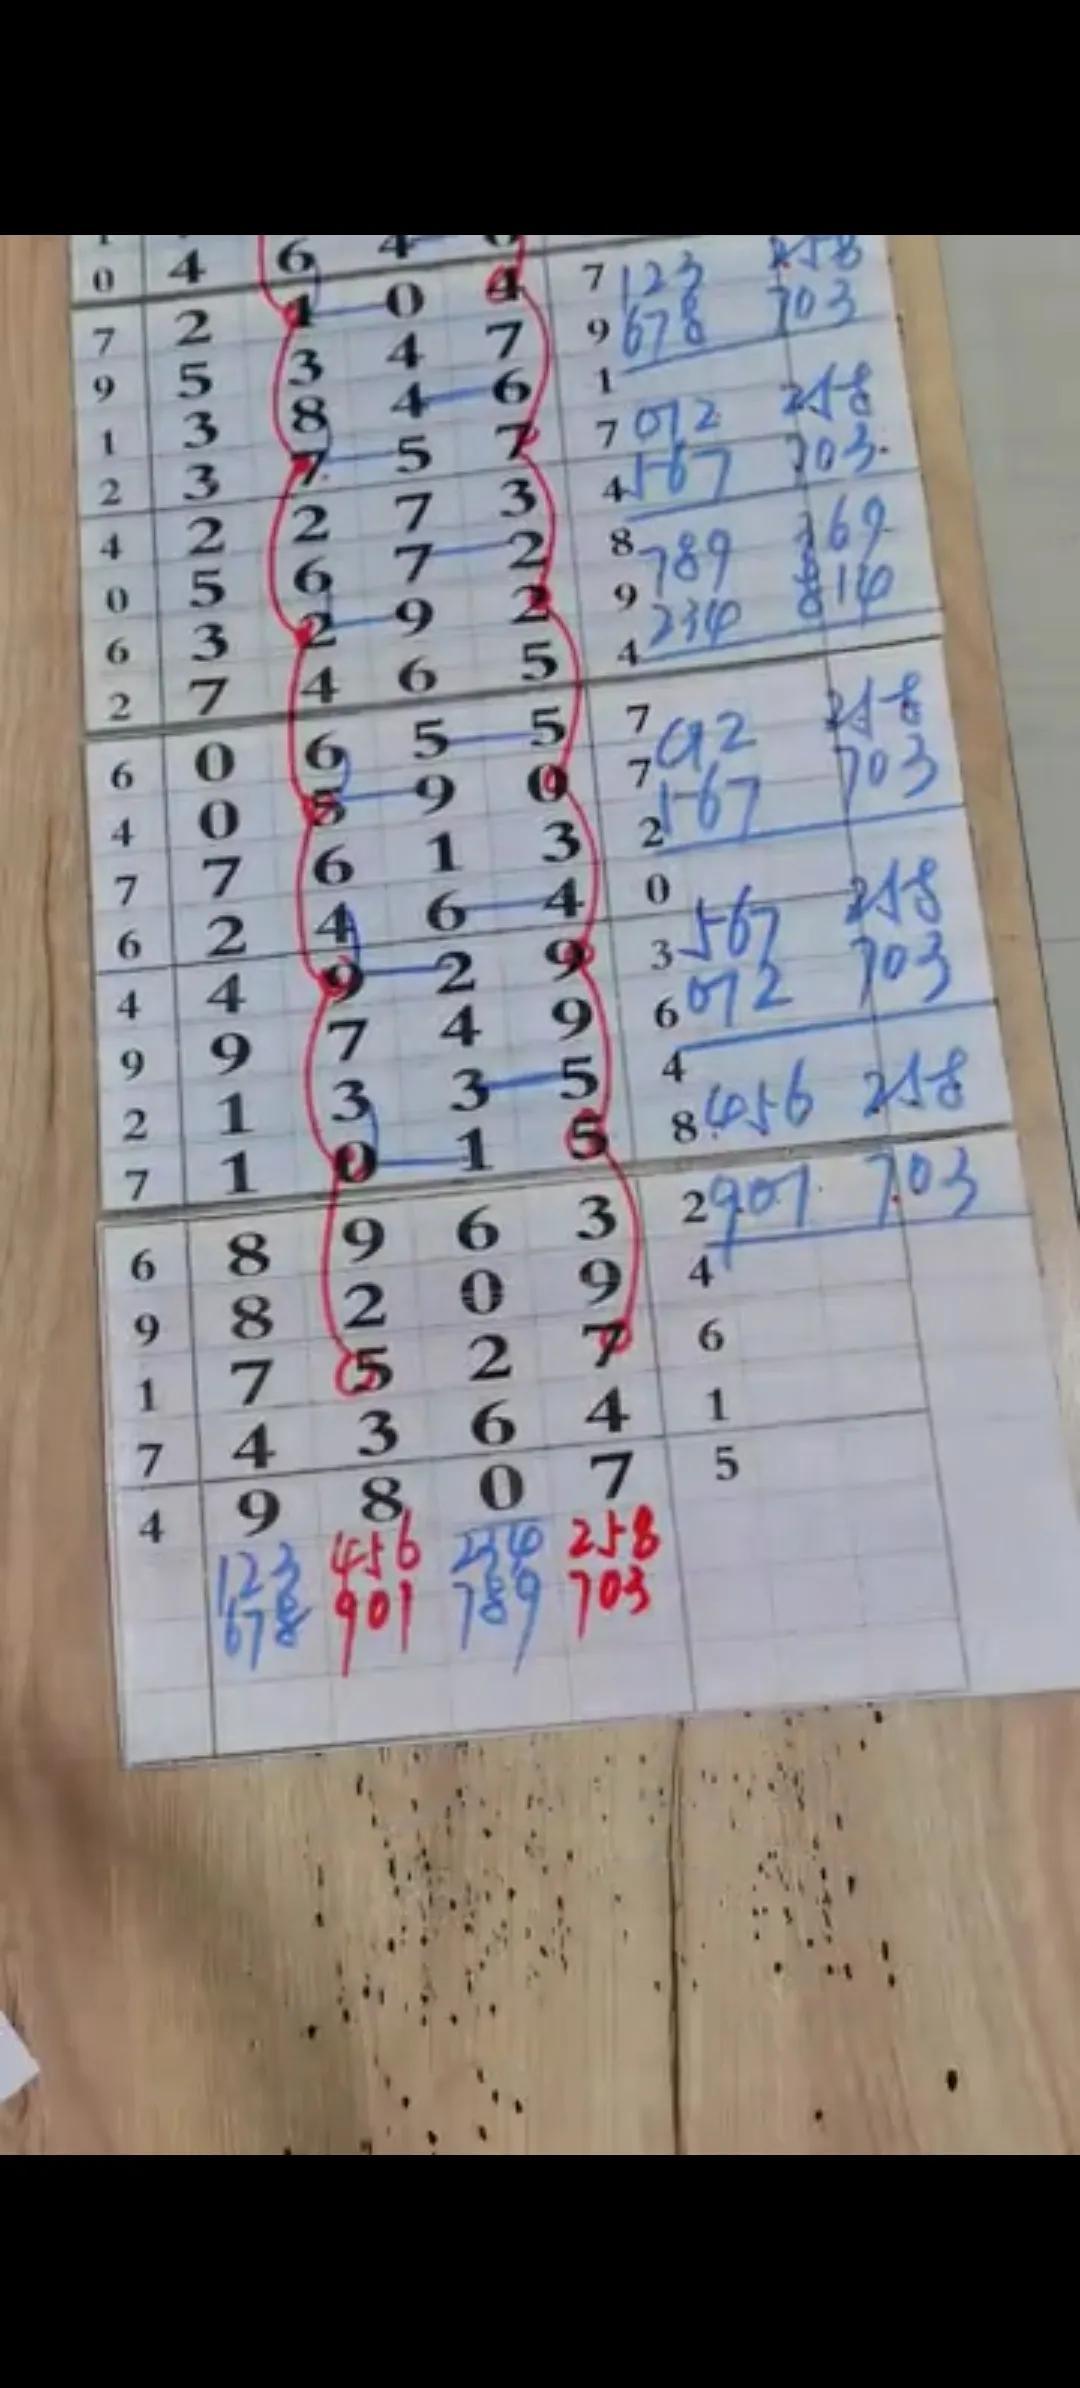 0 4 6 4
7 2 1 0 4 7 123 258
9 5 3 4 7 9 678 703
1 3 8 4 6 1
2 3 7 5 7 7 072 258
4 2 2 7 3 4 567 703
0 5 6 7 2 8 789 369
6 3 2 9 2 9 234 814
2 7 4 6 5 4
6 0 6 5 5 7 258
4 0 5 9 0 7 567 703
7 7 6 1 3 2
6 2 4 6 4 0 567 258
4 4 9 2 9 3 072 703
9 9 7 4 9 6
2 1 3 3 5 4 456 258
7 1 0 1 5 8
6 8 9 6 3 2 901 703
9 8 2 0 9 4
1 7 5 2 7 6
7 4 3 6 4 1
4 9 8 0 7 5
123 456 234 258
678 901 789 703